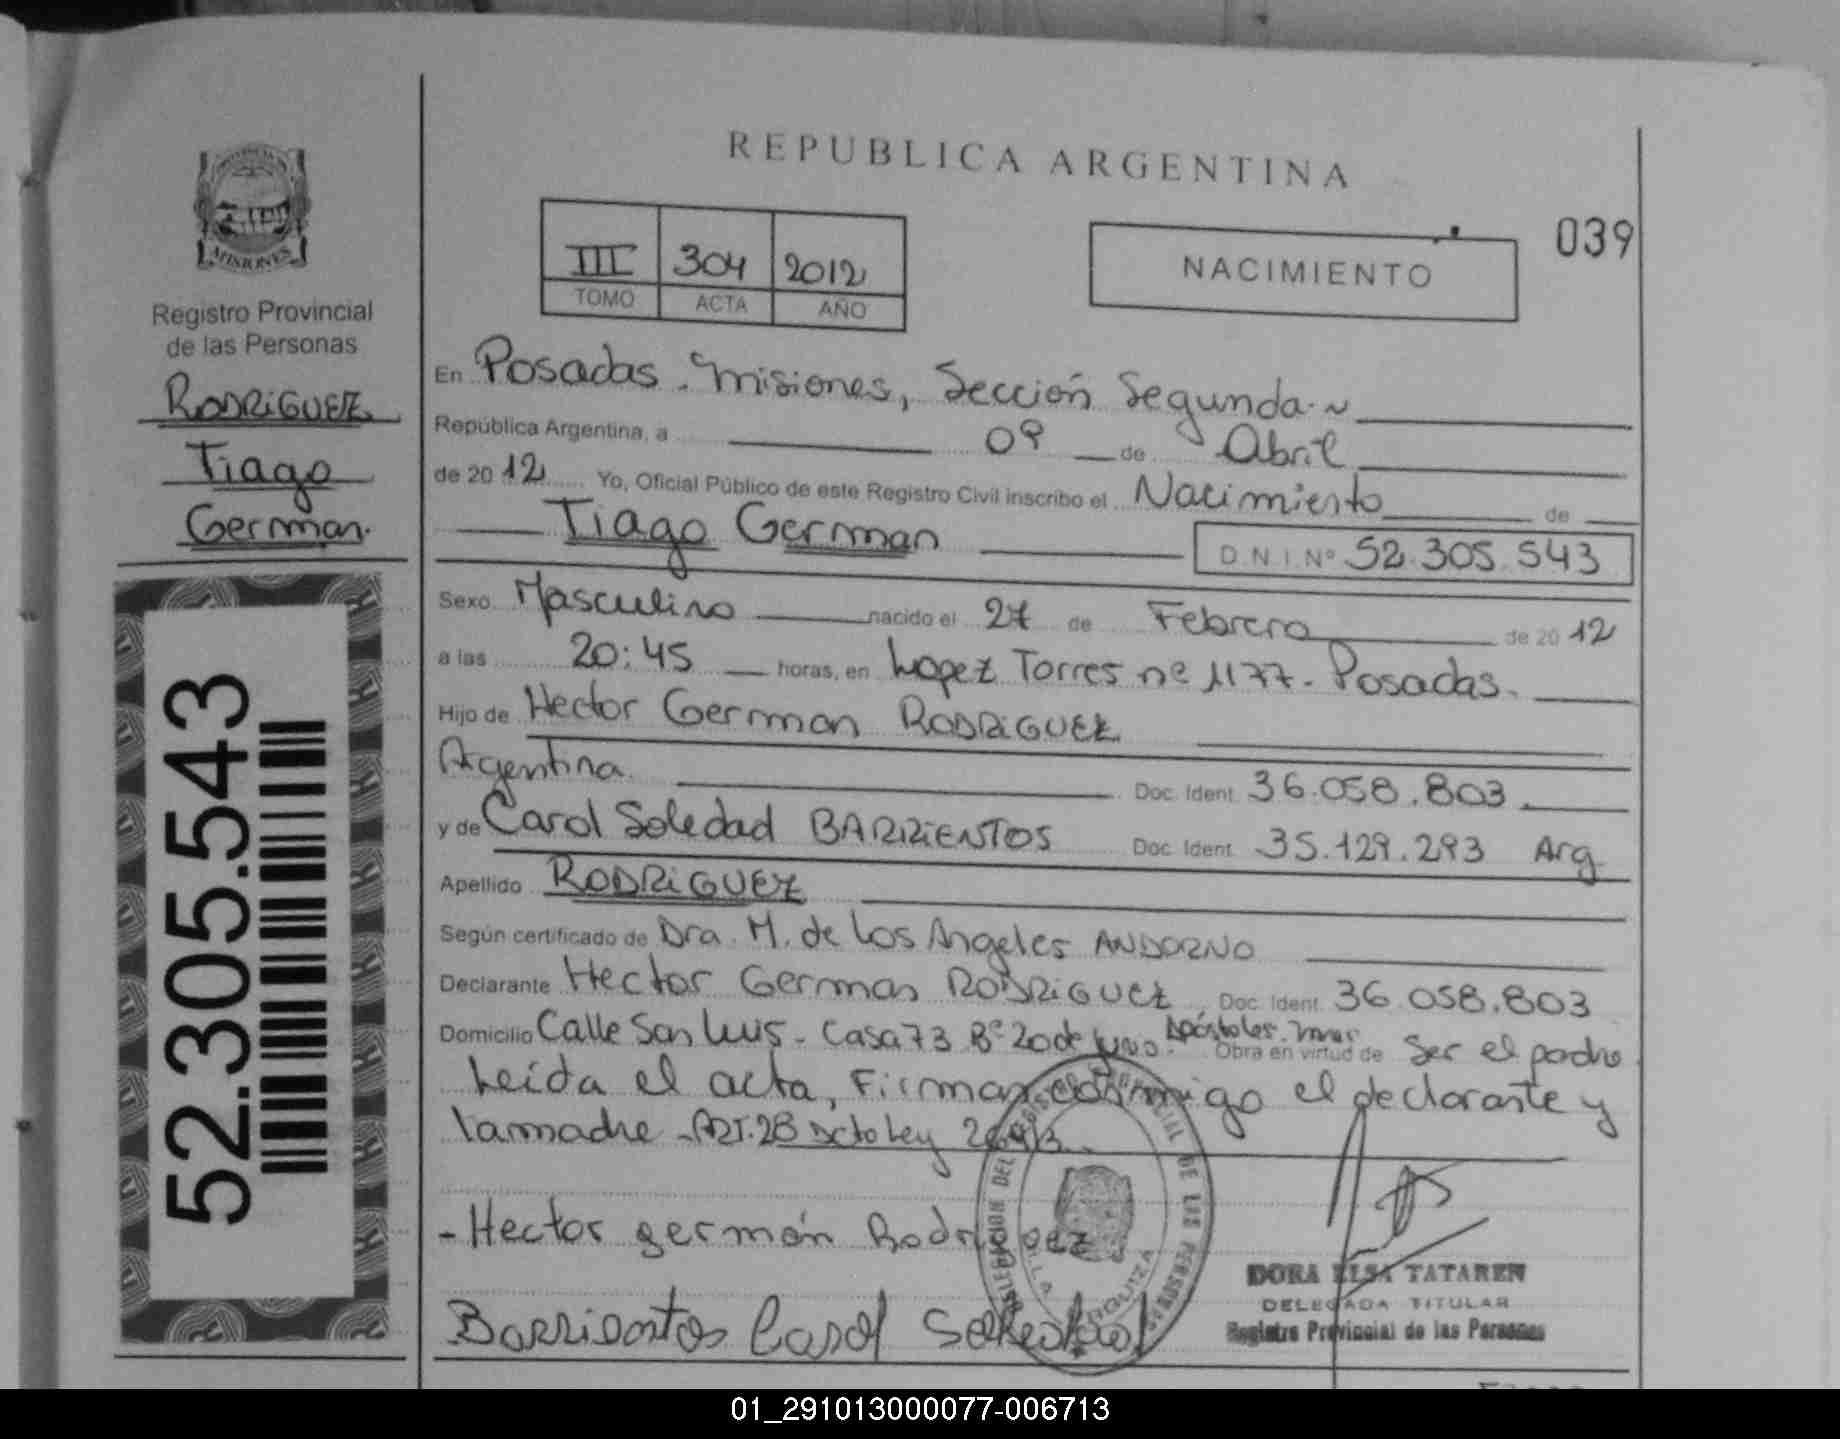 REPUBLICA ARGENTINA
PROVINCIA DE
MISIONES
Registro Provincial
de las Personas
RODRIGUEZ
Tiago
German.
52.305.543
III 304 2012
TOMO ACTA AÑO
NACIMIENTO
039
En Posadas. Misiones, Sección Segunda.~
República Argentina, a 09 de Abril
de 20 12 Yo, Oficial Público de este Registro Civil inscribo el Nacimiento de
Tiago German D.N.I. Nº 52.305.543
Sexo Masculino nacido el 27 de Febrero de 20 12
a las 20:45 horas, en Lopez Torres nº 1177. Posadas.
Hijo de Hector German RODRIGUEZ
Argentina. Doc. Ident. 36.058.803
y de Carol Soledad BARRIENTOS Doc. Ident. 35.129.293 Arg
Apellido RODRIGUEZ
Según certificado de Dra. M. de Los Angeles ANDORNO
Declarante Hector German RODRIGUEZ Doc. Ident. 36.058.803
Domicilio Calle San Luis - Casa 73 Bº 20 de Apóstoles. Obra en virtud de Ser el padre
Leída el acta, Firman conmigo el declarante y
la madre - ART. 28 Ley 26413
- Hector germán Rodriguez
Barrientos Carol Soledad
DELEGACION DEL REGISTRO PROVINCIAL DE LAS PERSONAS
VILLA URQUIZA
DORA ELSA TATAREN
DELEGADA TITULAR
Registro Provincial de las Personas
01_291013000077-006713